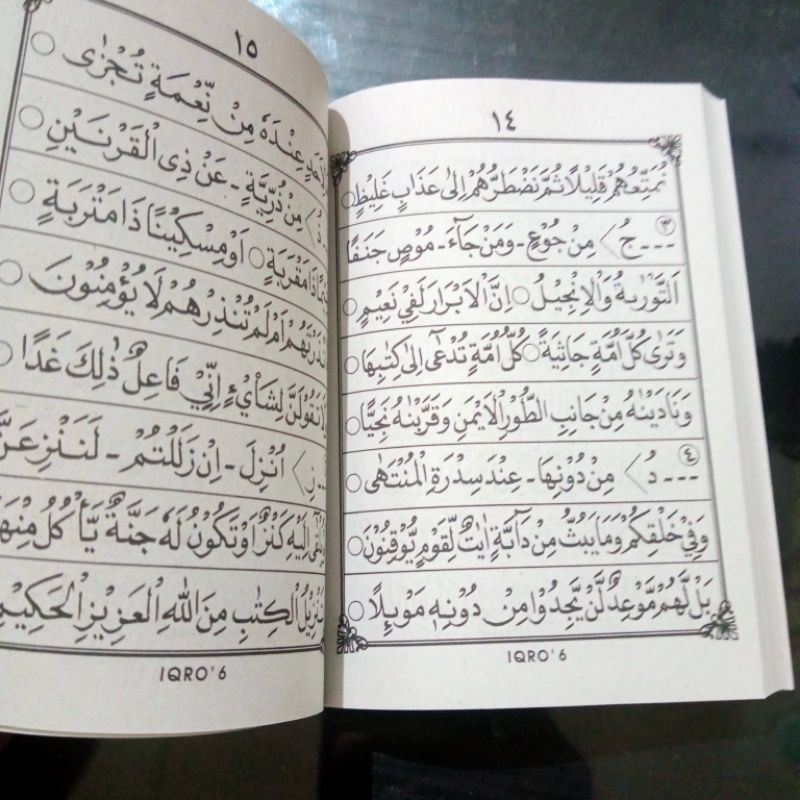 ١٤
نُمَتِّعُهُمْ قَلِيْلًا ثُمَّ نَضْطَرُّهُمْ اِلٰى عَذَابٍ غَلِيْظٍ○
٣ ---جُ〉 مِنْ جُوْعٍ - وَمَنْ جَآءَ - مُوْصٍ جَنَفًا
اَلتَّوْرٰىةُ وَالْاِنْجِيْلُ○ اِنَّ الْاَبْرَارَ لَفِيْ نَعِيْمٍ○
وَتَرٰى كُلَّ اُمَّةٍ جَاثِيَةً○ كُلُّ اُمَّةٍ تُدْعٰٓى اِلٰى كِتٰبِهَا○
وَنَادَيْنٰهُ مِنْ جَانِبِ الطُّوْرِ الْاَيْمَنِ وَقَرَّبْنٰهُ نَجِيًّا○
٤ ---دُ〉 مِنْ دُوْنِهَا - عِنْدَ سِدْرَةِ الْمُنْتَهٰى○
وَفِيْ خَلْقِكُمْ وَمَا يَبُثُّ مِنْ دَآبَّةٍ اٰيٰتٌ لِّقَوْمٍ يُّوْقِنُوْنَ○
بَلْ لَّهُمْ مَّوْعِدٌ لَّنْ يَّجِدُوْا مِنْ دُوْنِهٖ مَوْىِٕلًا○
IQRO'6
١٥
عِنْدَهٗ مِنْ نِّعْمَةٍ تُجْزٰٓى○
مِنْ ذُرِّيَّةٍ - عَنْ ذِى الْقَرْنَيْنِ○
ذَا مَقْرَبَةٍ○ اَوْ مِسْكِيْنًا ذَا مَتْرَبَةٍ○
اَمْ لَمْ تُنْذِرْهُمْ لَا يُؤْمِنُوْنَ○
تَقُوْلَنَّ لِشَا۟يْءٍ اِنِّيْ فَاعِلٌ ذٰلِكَ غَدًا○
زِ〉 اُنْزِلَ - اِنْ زَلَلْتُمْ - لَنَنْزِعَنَّ
اِلَيْهِ كَنْزٌ اَوْ تَكُوْنُ لَهٗ جَنَّةٌ يَّأْكُلُ مِنْهَا
تَنْزِيْلُ الْكِتٰبِ مِنَ اللّٰهِ الْعَزِيْزِ الْحَكِيْمِ
IQRO'6